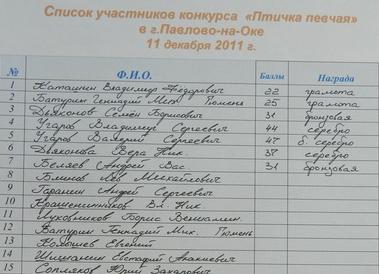 Список участников конкурса «Птичка певчая»
в г.Павлово-на-Оке
11 декабря 2011 г.
№ Ф.И.О. Баллы Награда
1 Каташин Владимир Федорович 22 грамота
2 Батурин Геннадий Мих. Тюмень 25 грамота
3 Дьяконов Семён Борисович 31 бронзовая
4 Угаров Владимир Сергеевич 44 серебро
5 Угаров Валерий Сергеевич 47 б. серебро
6 Дьяконова Вера Ник. 37 серебро
7 Беляев Андрей Вас 31 бронзовая
8 Блинов Лев Михайлович
9 Гаранин Андрей Сергеевич
10 Крашенинников Вл. Ник.
11 Борис Вениамин.
12 Батурин Геннадий Мих. Тюмень
13 Евгений
14 Евстафий
15 Сопляков Юрий Захарович